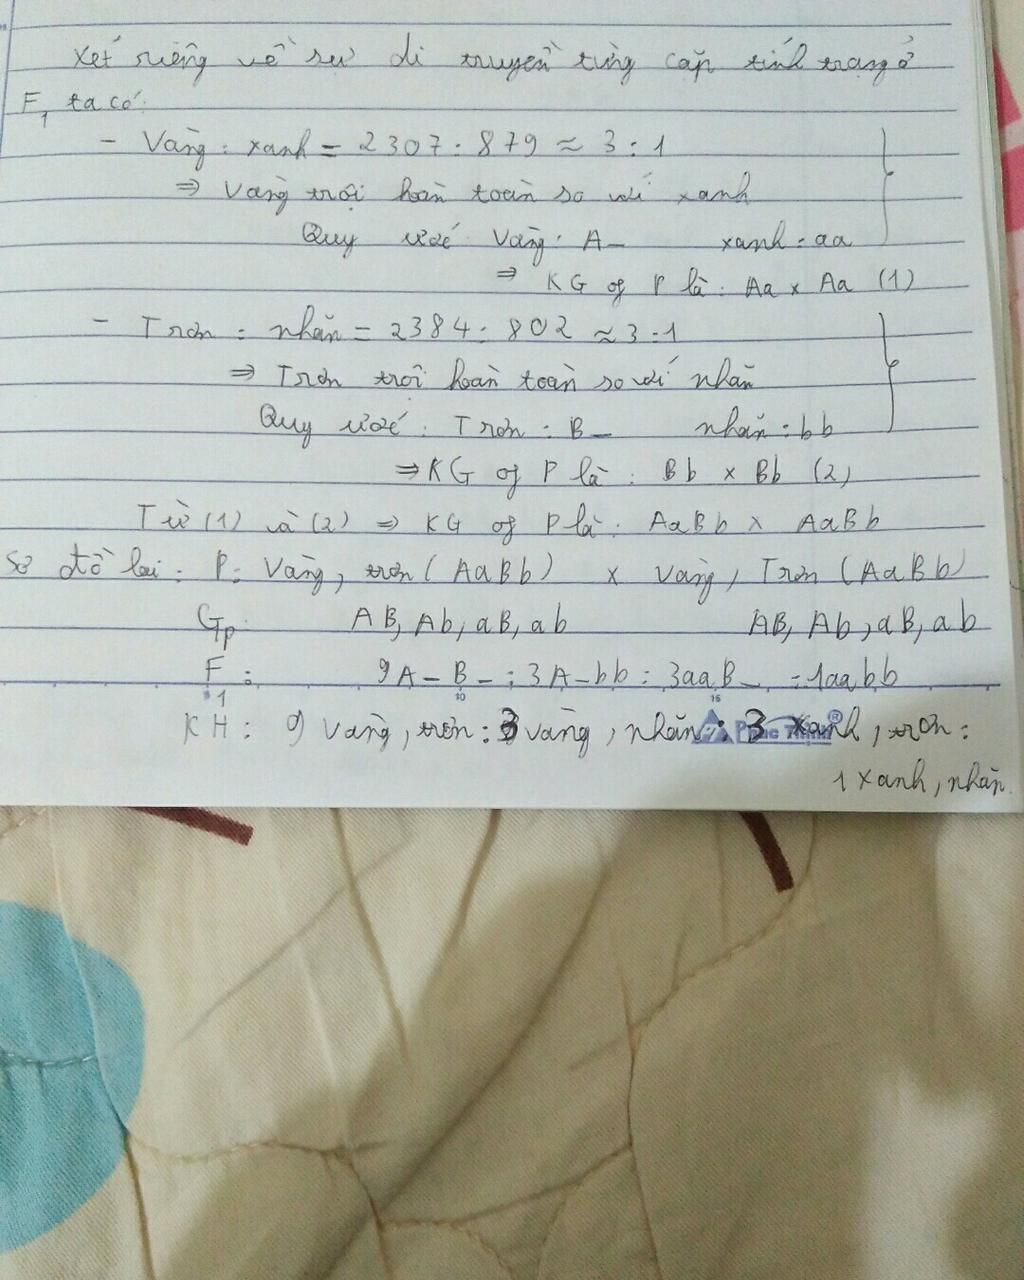 Xét riêng về sự di truyền từng cặp tính trạng ở
F1 ta có:
- Vàng : xanh = 2307 : 879 ≈ 3 : 1
⇒ Vàng trội hoàn toàn so với xanh
Quy ước Vàng: A- xanh: aa
⇒ KG of P là: Aa x Aa (1)
- Trơn : nhăn = 2384 : 802 ≈ 3 : 1
⇒ Trơn trội hoàn toàn so với nhăn
Quy ước: Trơn: B- nhăn: bb
⇒ KG of P là: Bb x Bb (2)
Từ (1) và (2) ⇒ KG of P là: AaBb x AaBb
Sơ đồ lai: P: Vàng, trơn (AaBb) x Vàng, Trơn (AaBb)
Gp: AB, Ab, aB, ab AB, Ab, aB, ab
F1: 9A-B- : 3A-bb : 3aaB- : 1aabb
10 15
KH: 9 vàng, trơn : 3 vàng, nhăn : 3 xanh, trơn :
1 xanh, nhăn.